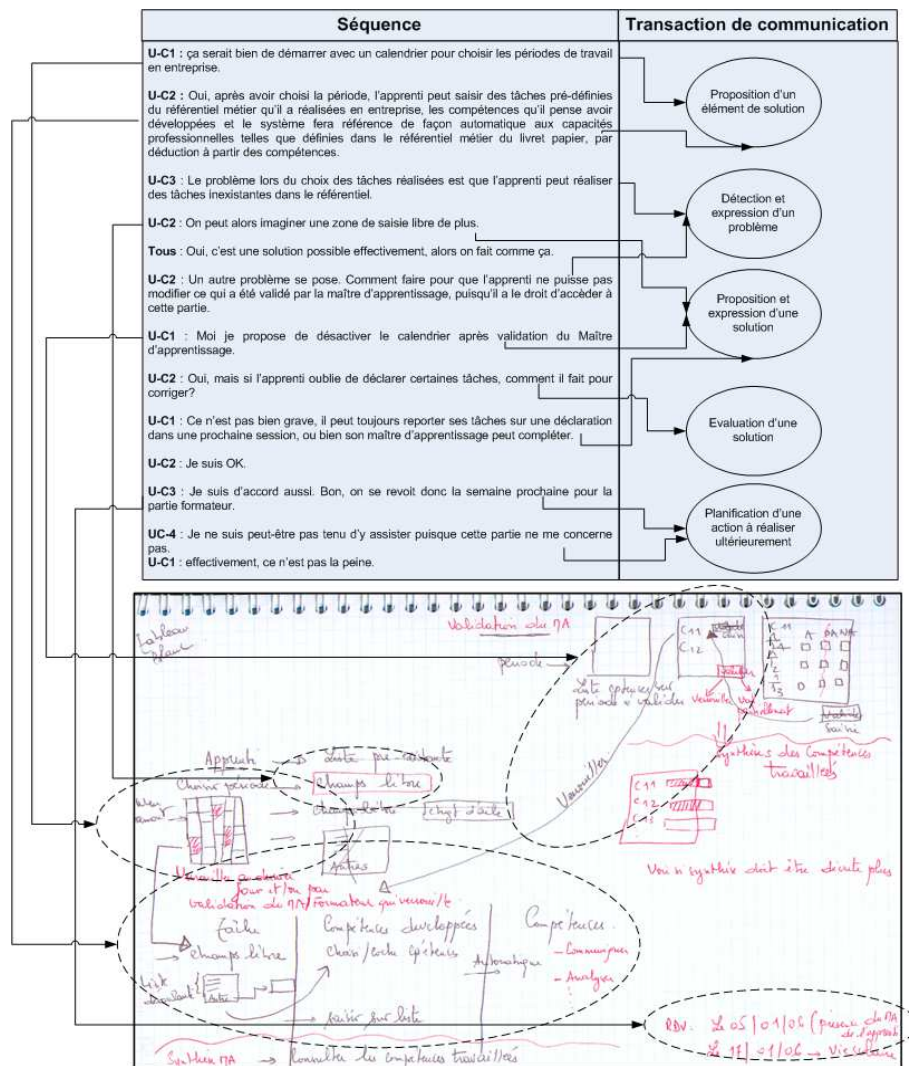 Séquence
Transaction de communication
U-C1 : ça serait bien de démarrer avec un calendrier pour choisir les périodes de travail
en entreprise.
U-C2 : Oui, après avoir choisi la période, l'apprenti peut saisir des tâches pré-définies
du référentiel métier qu'il a réalisées en entreprise, les compétences qu'il pense avoir
développées et le système fera référence de façon automatique aux capacités
professionnelles telles que définies dans le référentiel métier du livret papier, par
déduction à partir des compétences.
U-C3 : Le problème lors du choix des tâches réalisées est que l'apprenti peut réaliser
des tâches inexistantes dans le référentiel.
U-C2 : On peut alors imaginer une zone de saisie libre de plus.
Tous : Oui, c'est une solution possible effectivement, alors on fait comme ça.
U-C2 : Un autre problème se pose. Comment faire pour que l'apprenti ne puisse pas
modifier ce qui a été validé par la maître d'apprentissage, puisqu'il a le droit d'accèder à
cette partie.
U-C1 : Moi je propose de désactiver le calendrier après validation du Maître
d'apprentissage.
U-C2 : Oui, mais si l'apprenti oublie de déclarer certaines tâches, comment il fait pour
corriger?
U-C1 : Ce n'est pas bien grave, il peut toujours reporter ses tâches sur une déclaration
dans une prochaine session, ou bien son maître d'apprentissage peut compléter.
U-C2 : Je suis OK.
U-C3 : Je suis d'accord aussi. Bon, on se revoit donc la semaine prochaine pour la
partie formateur.
UC-4 : Je ne suis peut-être pas tenu d'y assister puisque cette partie ne me concerne
pas.
U-C1 : effectivement, ce n'est pas la peine.
Proposition d'un
élément de solution
Détection et
expression d'un
problème
Proposition et
expression d'une
solution
Evaluation d'une
solution
Planification d'une
action à réaliser
ultérieurement
Validation du MA
Tableau
blanc
période
C11
C12
C11
A
Verrouiller
Saisie
Synthèses des Compétences
travaillées
C11
C12
C13
Apprenti
Liste pre-existante
Choisir période
champs libre
champs libre
Autres
jour et/ou par
validation du MA/Formateur
Tâche
champs libre
Liste
déroulante
Autre
Compétences développées
saisir sur liste
Automatique
Compétences
- Communiquer
- Analyser
synthèse doit être
RDV. Le 05/01/06 (présence du MA
de l'apprenti
Le 17/01/06 → Vie scolaire
Synthèse MA → Consulter les compétences travaillées